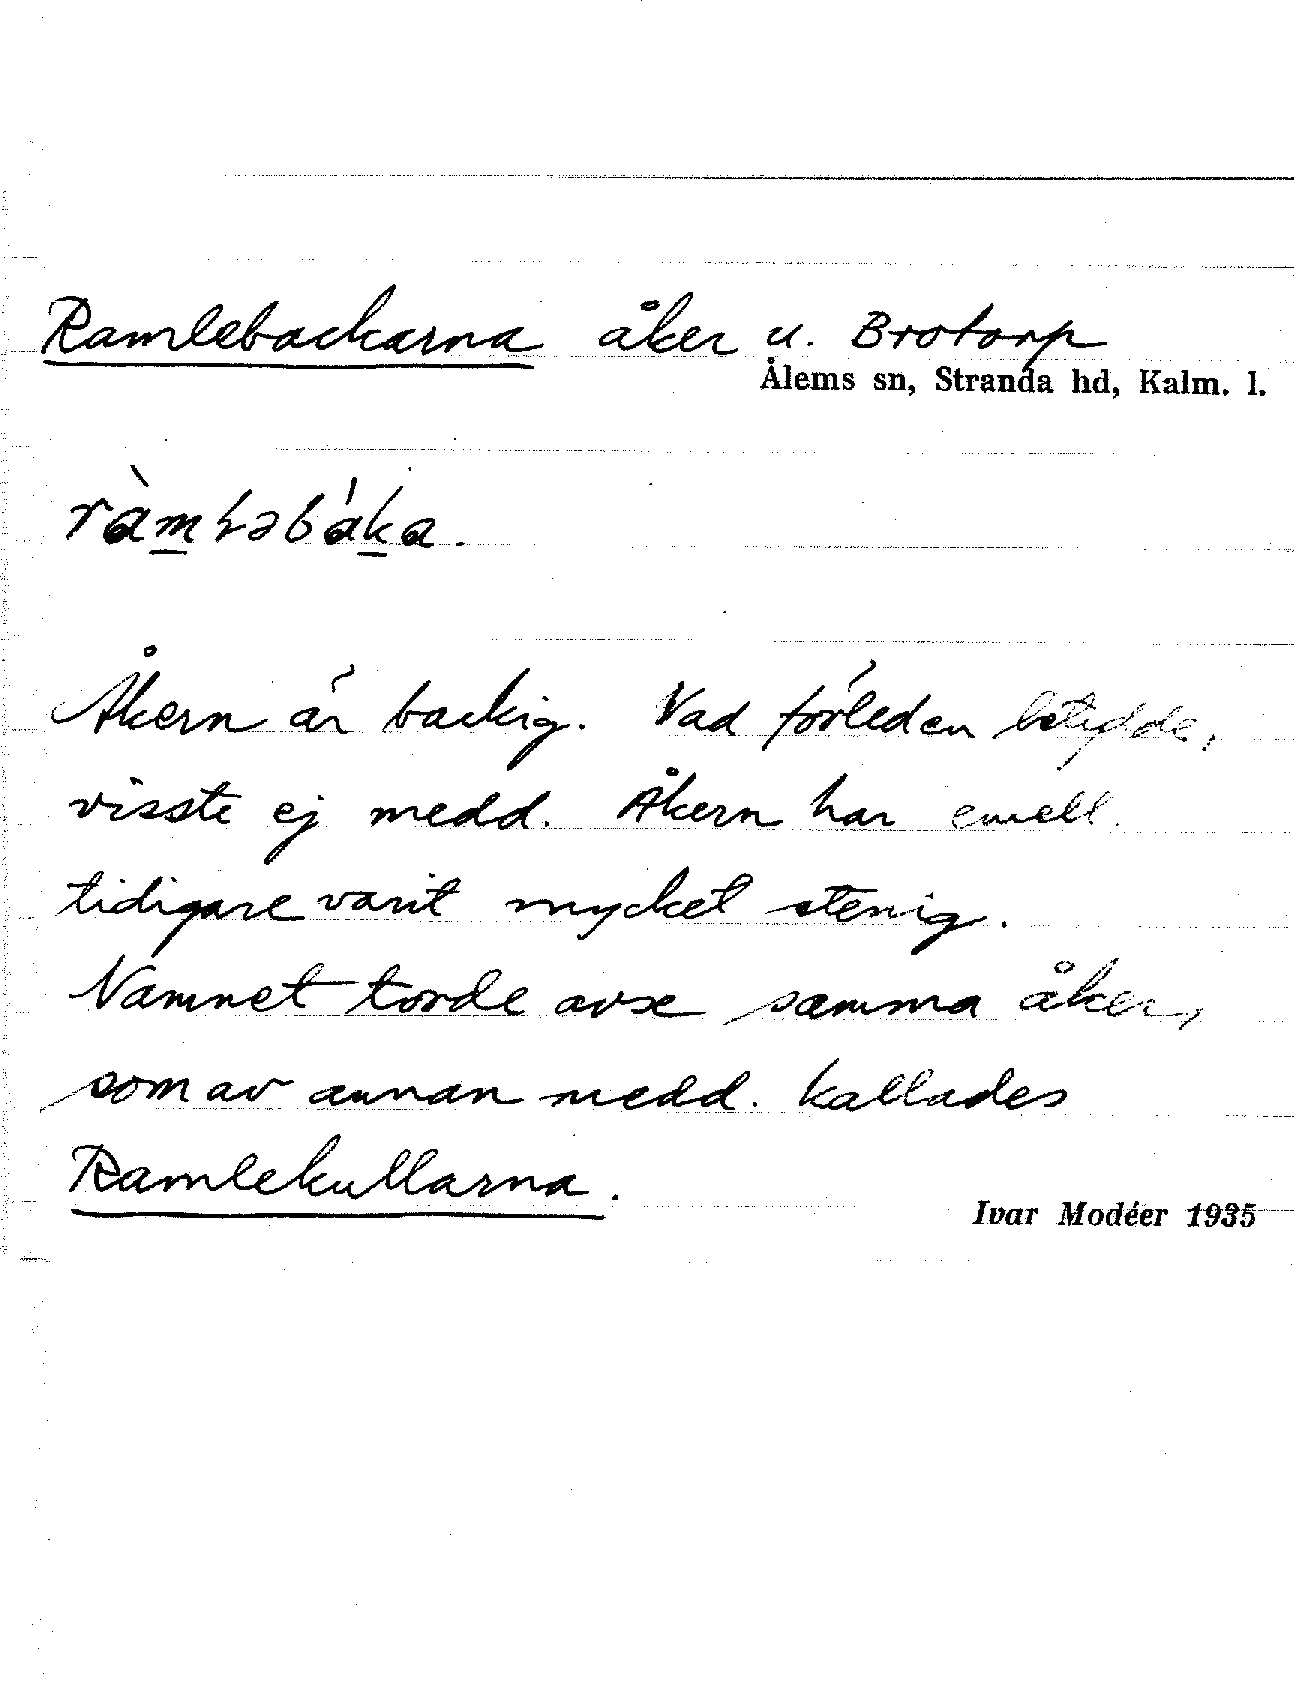 Ramlebackarna åker u. Brotorp
Ålems sn, Stranda hd, Kalm. l.
ràmɫəbáka.
Åkern är backig. Vad förleden betydde,
visste ej medd. Åkern har emell.
tidigare varit mycket stenig.
Namnet torde avse samma åker,
som av annan medd. kallades
Ramlekullarna.
Ivar Modéer 1935